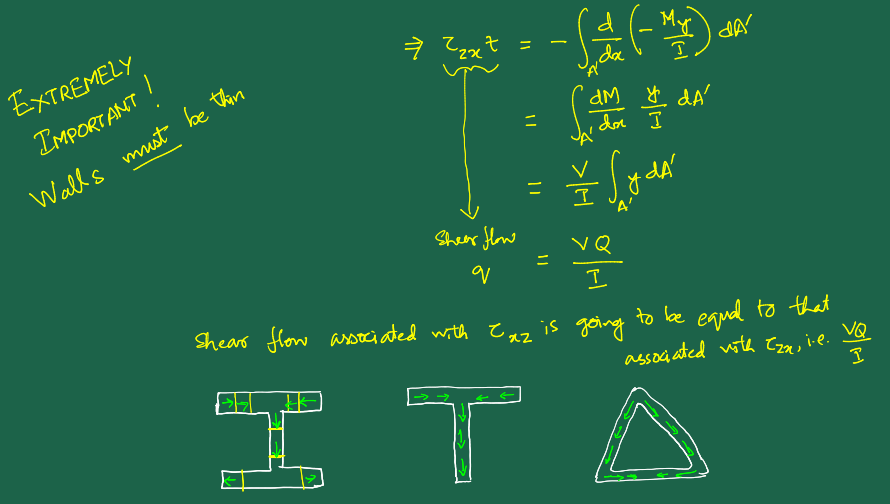 EXTREMELY
IMPORTANT!
Walls must be thin
⇒ τ_zx t = - ∫_A' d/dx (- My/I) dA'
= ∫_A' dM/dx y/I dA'
= V/I ∫_A' y dA'
Shear flow
q = VQ/I
Shear flow associated with τ_xz is going to be equal to that
associated with τ_zx, i.e. VQ/I